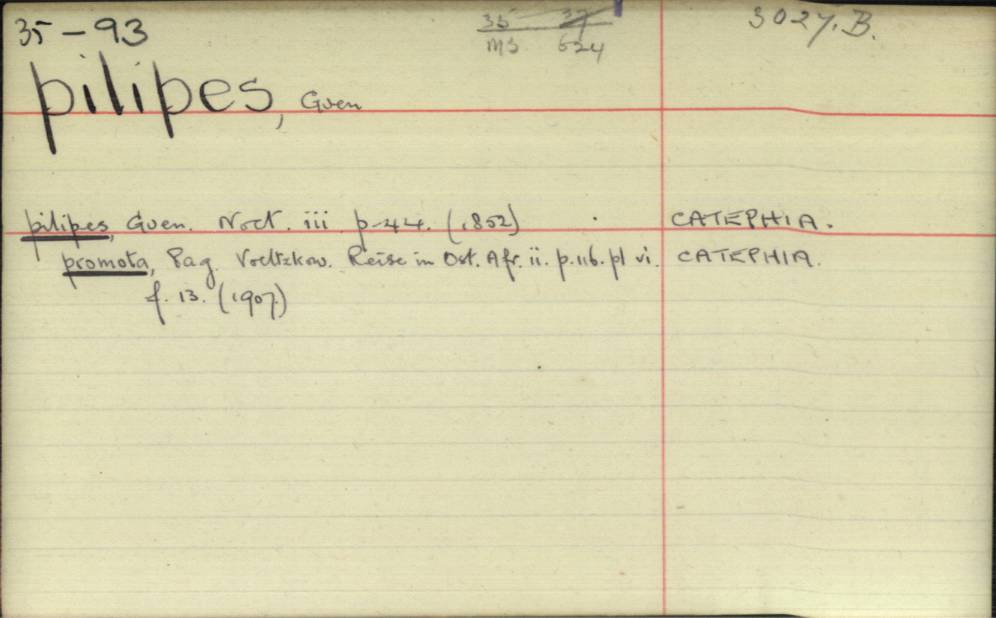 35-93
35 37
ms 624
3027.B.
pilipes, Guen
pilipes, Guen. Noct. iii p-44. (1852) CATEPHIA.
promota, Pag. Voeltzkow. Reise in Ost. Afr. ii. p.116. pl vi. CATEPHIA.
f. 13. (1907)